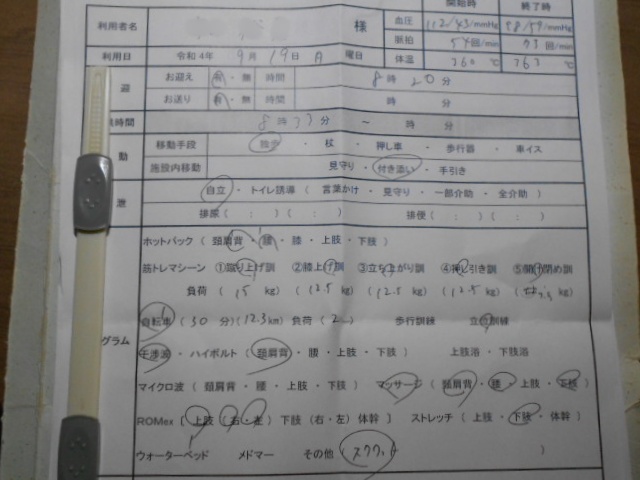 開始時 終了時
利用者名 様 血圧 112/43/mmHg 98/59/mmHg
脈拍 54回/min 73回/min
利用日 令和4年 9月 19日 曜日 体温 360℃ 363℃
迎 お迎え 有・無 時間 8時20分
お送り 有・無 時間 時 分
時間 8時33分 ～ 時 分
動 移動手段 独歩 ・ 杖 ・ 押し車 ・ 歩行器 ・ 車イス
施設内移動 見守り ・ 付き添い ・ 手引き
泄 自立 ・ トイレ誘導 ( 言葉かけ ・ 見守り ・ 一部介助 ・ 全介助 )
排尿 ( : ) ( : ) 排便 ( : ) ( : )
ホットパック ( 頚肩背 ・ 腰 ・ 膝 ・ 上肢 ・ 下肢 )
筋トレマシーン ①蹴り上げ訓 ②膝上げ訓 ③立ち上がり訓 ④押し引き訓 ⑤開け閉め訓
負荷 ( 15 kg) (12.5 kg) (12.5 kg) (12.5 kg) ( kg)
自転車 (30分) (12.3km) 負荷 (2 ) 歩行訓練 立位訓練
グラム 干渉波 ・ ハイボルト ( 頚肩背 ・ 腰 ・ 上肢 ・ 下肢 ) 上肢浴 ・ 下肢浴
マイクロ波 ( 頚肩背 ・ 腰 ・ 上肢 ・ 下肢 ) マッサージ ( 頚肩背 ・ 腰 ・ 上肢 ・ 下肢 )
ROMex [ 上肢 (右・左) 下肢 (右・左) 体幹 ] ストレッチ ( 上肢 ・ 下肢 ・ 体幹 )
ウォーターベッド メドマー その他 ( スクワット )